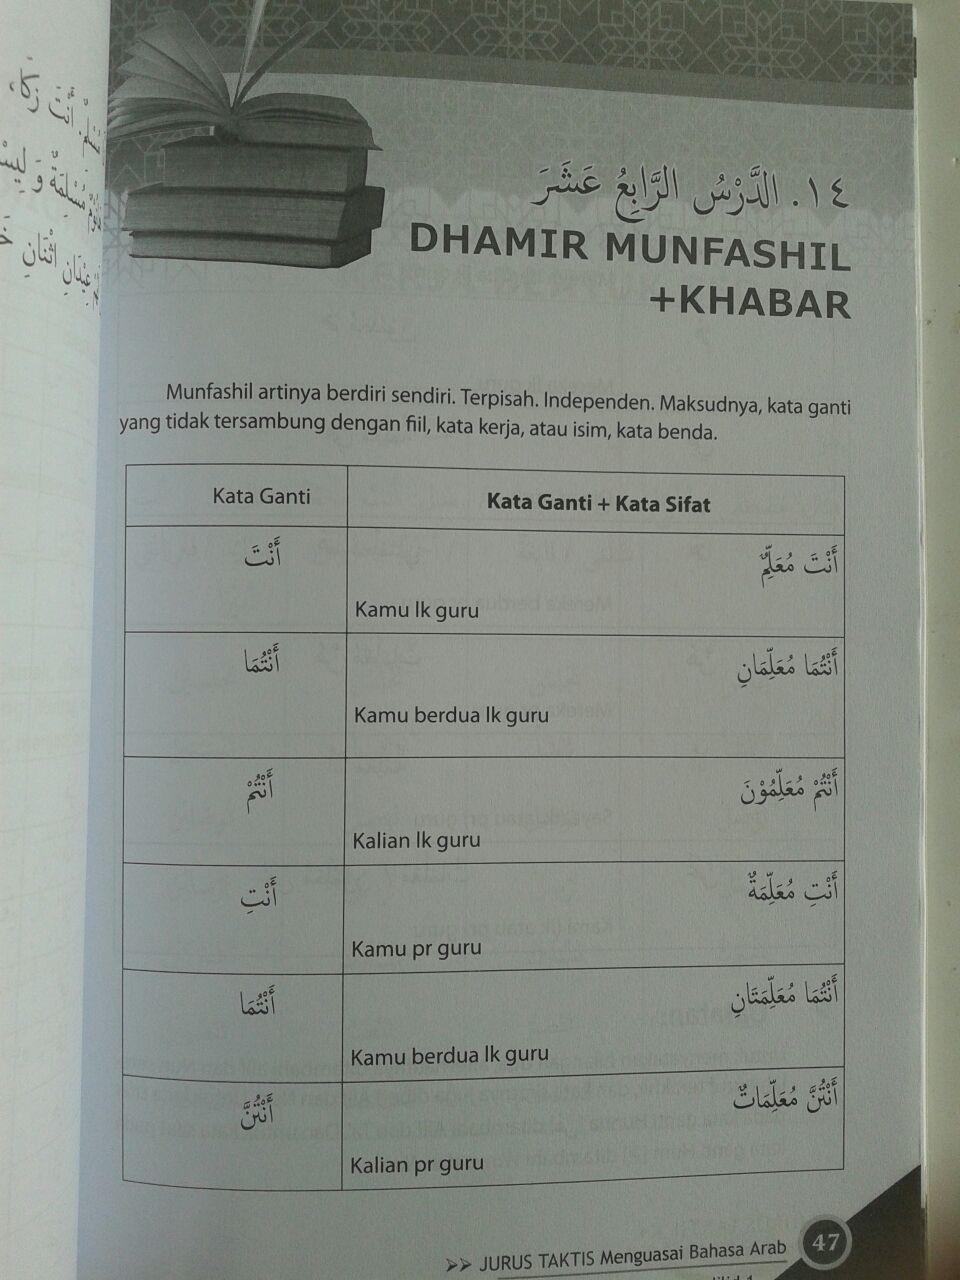 ١٤. الدَّرْسُ الرَّابِعُ عَشَرَ
DHAMIR MUNFASHIL
+KHABAR
Munfashil artinya berdiri sendiri. Terpisah. Independen. Maksudnya, kata ganti
yang tidak tersambung dengan fiil, kata kerja, atau isim, kata benda.
Kata Ganti
Kata Ganti + Kata Sifat
أَنْتَ
أَنْتَ مُعَلِّمٌ
Kamu lk guru
أَنْتُمَا
أَنْتُمَا مُعَلِّمَانِ
Kamu berdua lk guru
أَنْتُمْ
أَنْتُمْ مُعَلِّمُوْنَ
Kalian lk guru
أَنْتِ
أَنْتِ مُعَلِّمَةٌ
Kamu pr guru
أَنْتُمَا
أَنْتُمَا مُعَلِّمَتَانِ
Kamu berdua lk guru
أَنْتُنَّ
أَنْتُنَّ مُعَلِّمَاتٌ
Kalian pr guru
JURUS TAKTIS Menguasai Bahasa Arab
47